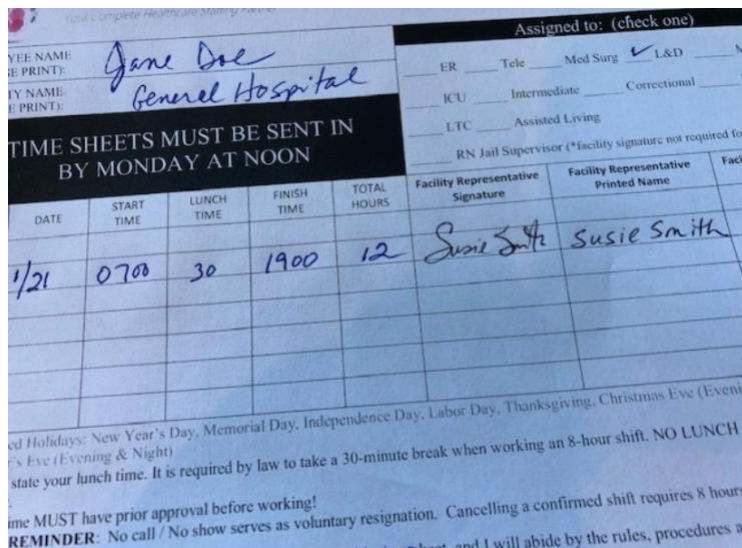 Your Complete Healthcare Staffing Partner
YEE NAME
E PRINT): Jane Doe
TY NAME
E PRINT): General Hospital
Assigned to: (check one)
ER Tele Med Surg ✓ L&D
ICU Intermediate Correctional
LTC Assisted Living
RN Jail Supervisor (*facility signature not required fo
TIME SHEETS MUST BE SENT IN
BY MONDAY AT NOON
DATE START TIME LUNCH TIME FINISH TIME TOTAL HOURS Facility Representative Signature Facility Representative Printed Name Faci
1/21 0700 30 1900 12 Susie Smith Susie Smith
ed Holidays: New Year's Day, Memorial Day, Independence Day, Labor Day, Thanksgiving, Christmas Eve (Eveni
r's Eve (Evening & Night)
state your lunch time. It is required by law to take a 30-minute break when working an 8-hour shift. NO LUNCH
ime MUST have prior approval before working!
REMINDER: No call / No show serves as voluntary resignation. Cancelling a confirmed shift requires 8 hour
and I will abide by the rules, procedures a